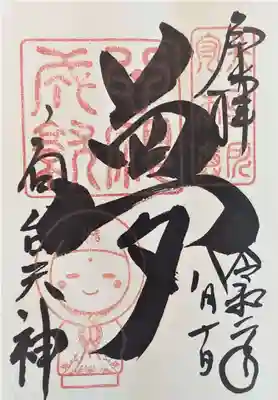 奉拝
令和二年
八月十日
夢
高台天神